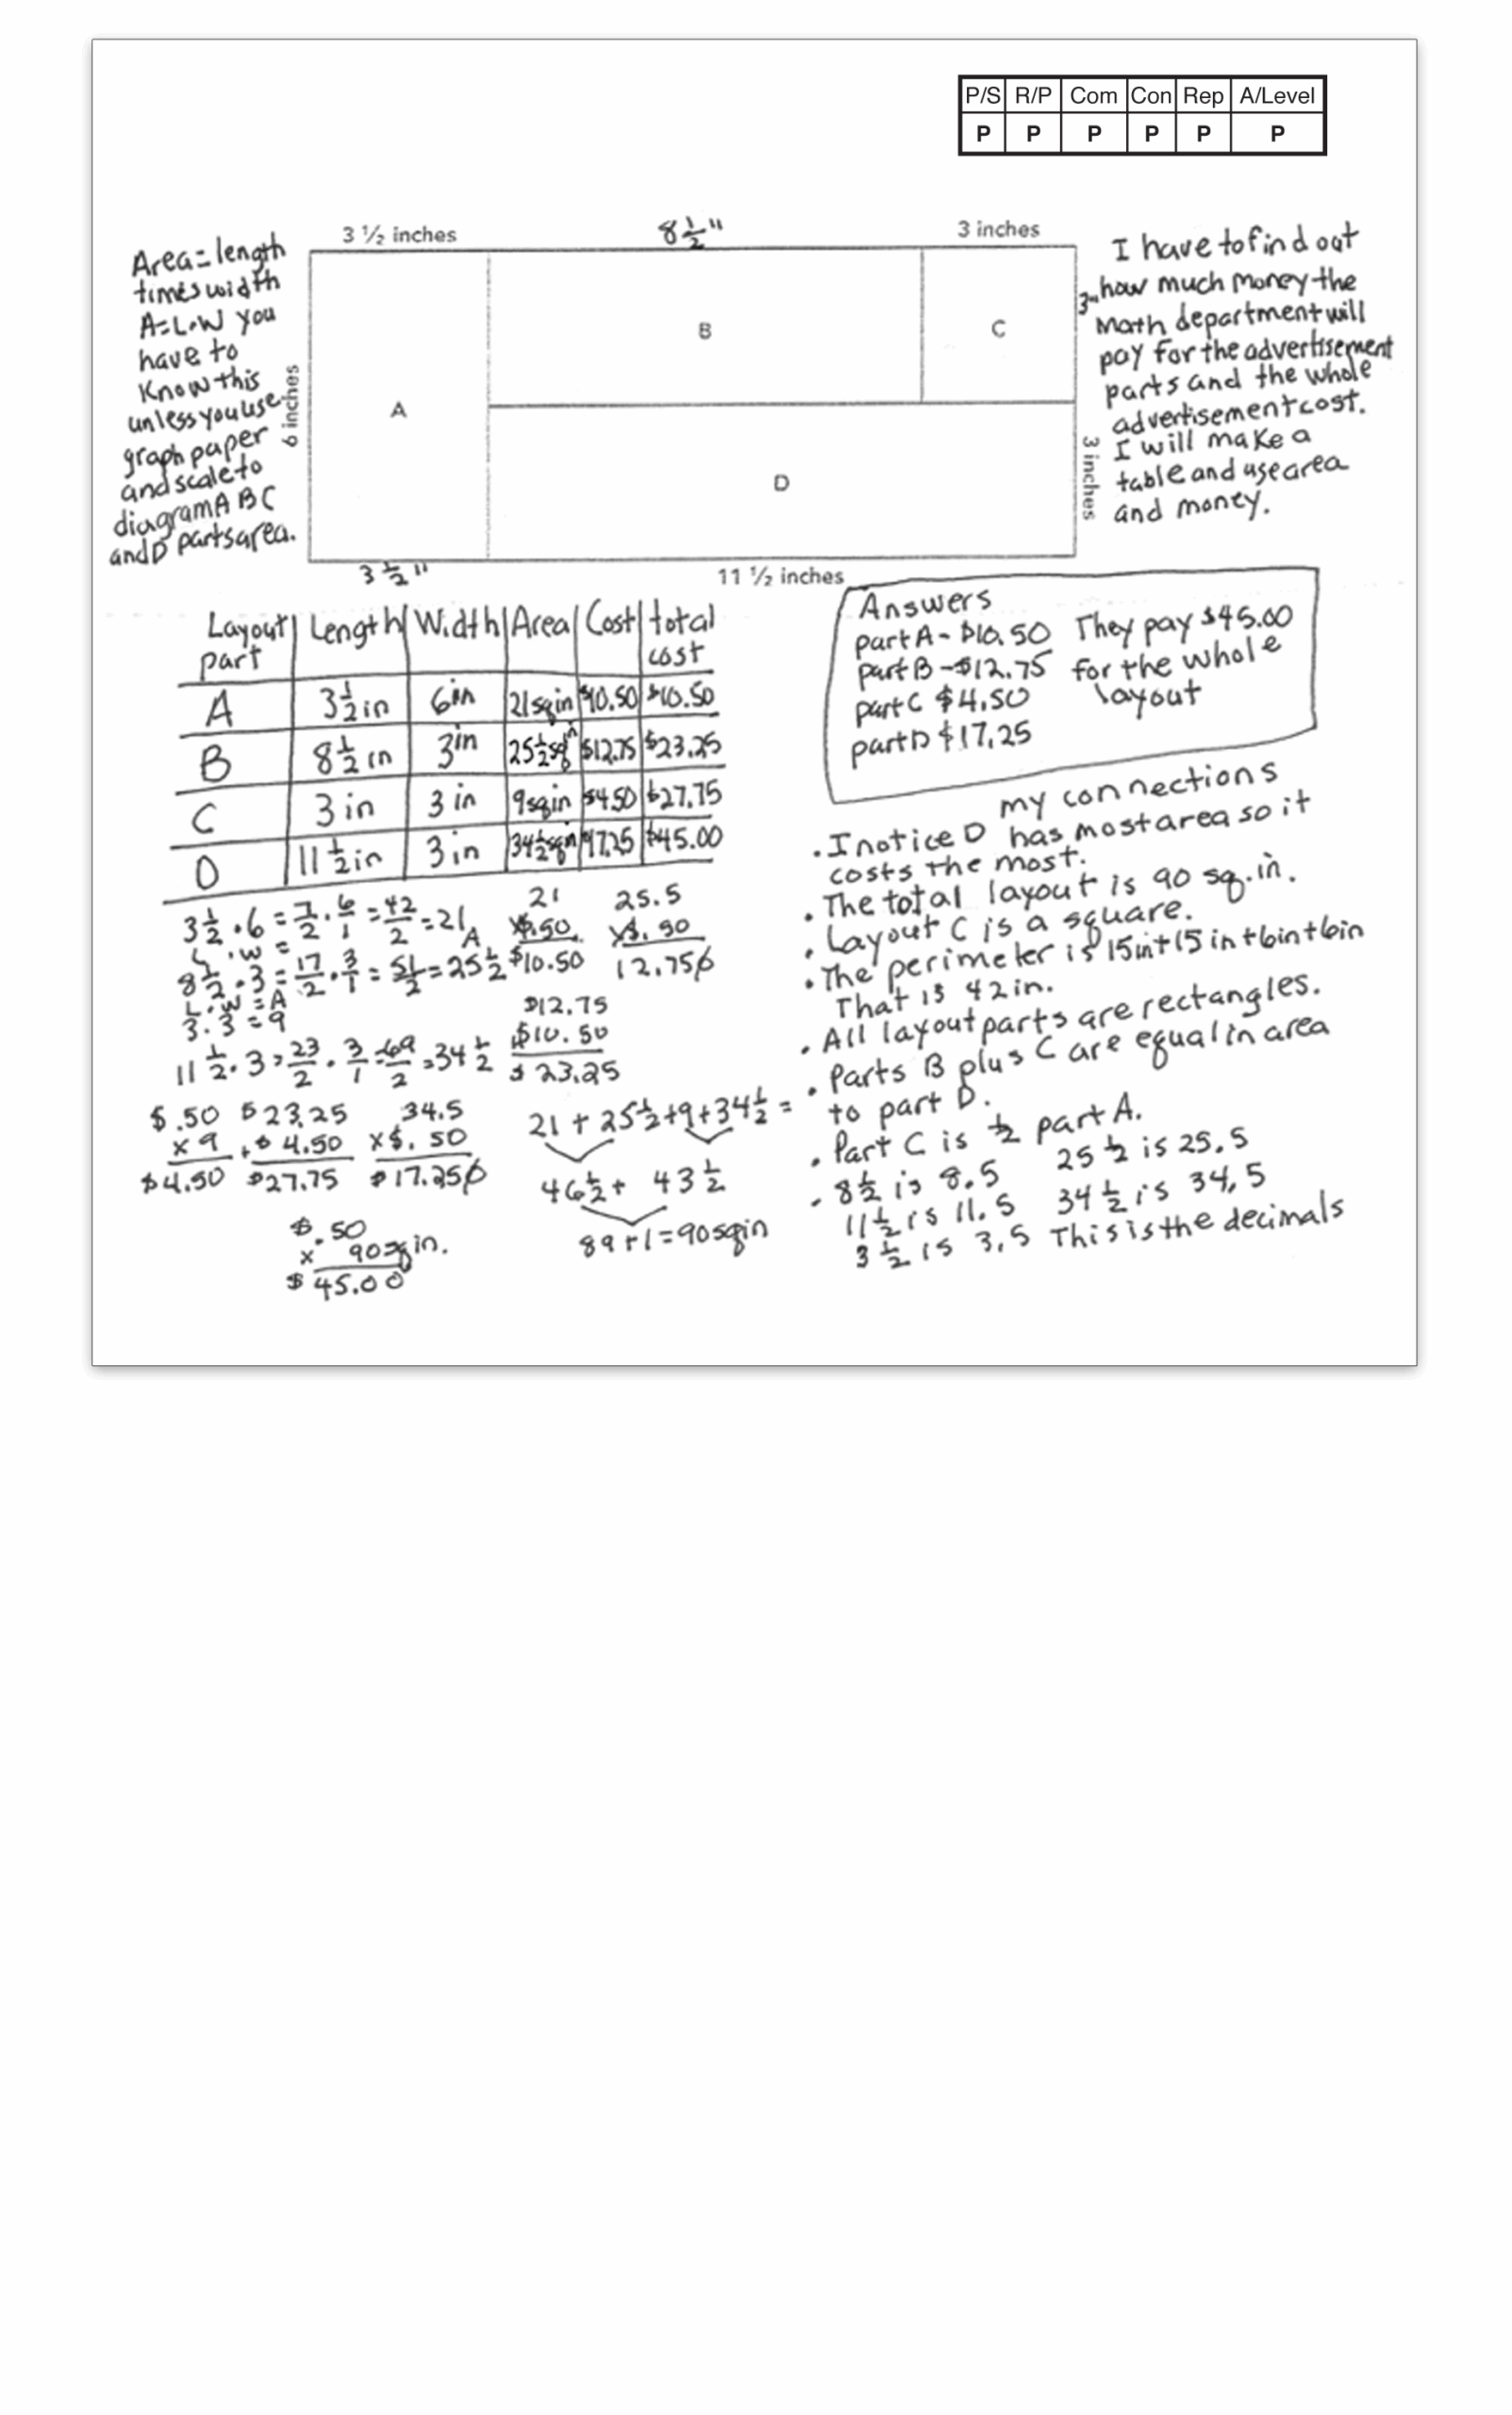 P/S R/P Com Con Rep A/Level
P P P P P P
Area = length
times width
A=L•W you
have to
know this
unless you use
graph paper
and scale to
diagram A B C
and D parts area.
3 ½ inches 8½" 3 inches
6 inches
A
B
C
D
3"
3 inches
3½"
11 ½ inches
I have to find out
how much money the
Math department will
pay for the advertisement
parts and the whole
advertisement cost.
I will make a
table and use area
and money.
Layout part | Length | Width | Area | Cost | total cost
A | 3½ in | 6 in | 21 sq in | $10.50 | $10.50
B | 8½ in | 3 in | 25½ sq in | $12.75 | $23.25
C | 3 in | 3 in | 9 sq in | $4.50 | $27.75
D | 11½ in | 3 in | 34½ sq in | $17.25 | $45.00
Answers
part A - $10.50 They pay $45.00
part B - $12.75 for the whole
part C $4.50 layout
part D $17.25
3½ • 6 = 7/2 • 6/1 = 42/2 = 21
L • W = A
8½ • 3 = 17/2 • 3/1 = 51/2 = 25½
L • W = A
3 • 3 = 9
11½ • 3 = 23/2 • 3/1 = 69/2 = 34½
21
x $.50
$10.50
25.5
x $.50
12.750
$12.75
+ $10.50
$ 23.25
$ .50
x 9
$4.50
$23.25
+ $ 4.50
$27.75
34.5
x $. 50
$17.250
$.50
x 90 sq in.
$ 45.00
21 + 25½ + 9 + 34½ =
46½ + 43½
89 + 1 = 90 sq in
my connections
• I notice D has most area so it
costs the most.
• The total layout is 90 sq. in.
• Layout C is a square.
• The perimeter is 15 in + 15 in + 6 in + 6 in
That is 42 in.
• All layout parts are rectangles.
• Parts B plus C are equal in area
to part D.
• Part C is ½ part A.
- 8½ is 8.5 25½ is 25.5
11½ is 11.5 34½ is 34.5
3½ is 3.5 This is the decimals